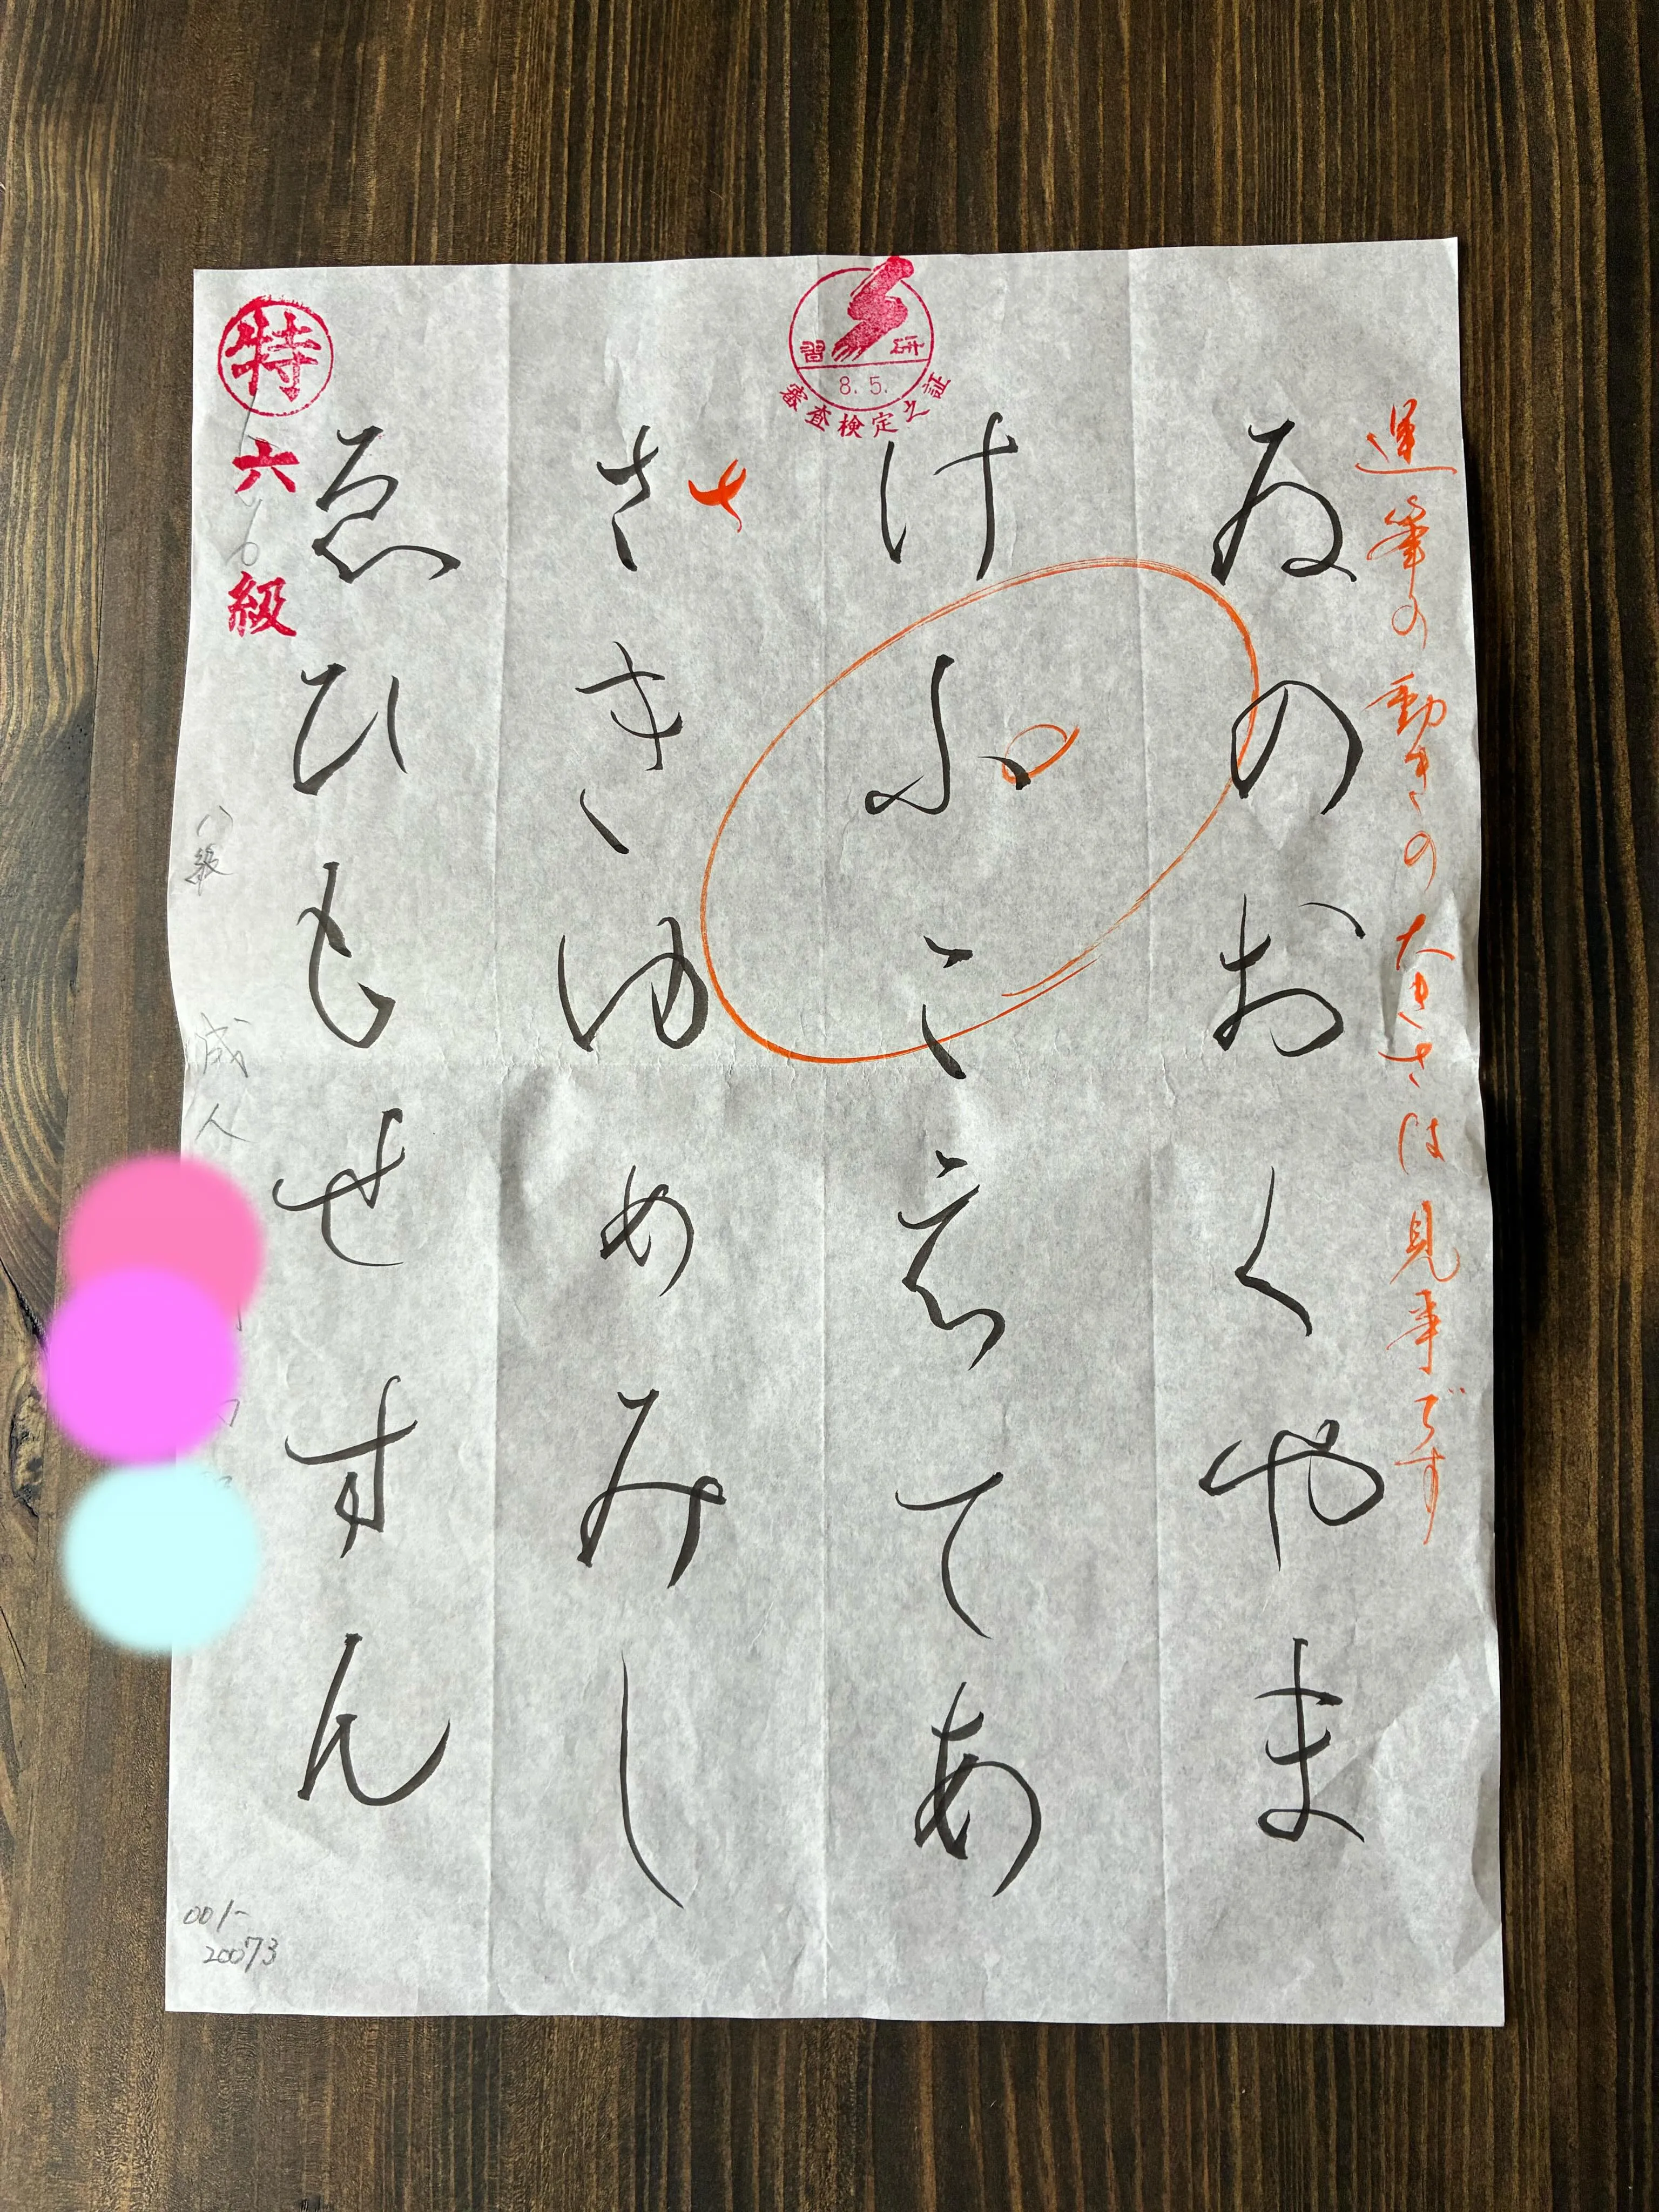 運筆の動きの大きさは見事です
ゐのおくやま
けふこえてあ
さきゆめみし
ゑひもせすん
さ
習研
8.5.
審査検定之証
特
六級
八級 成人
001-
20073